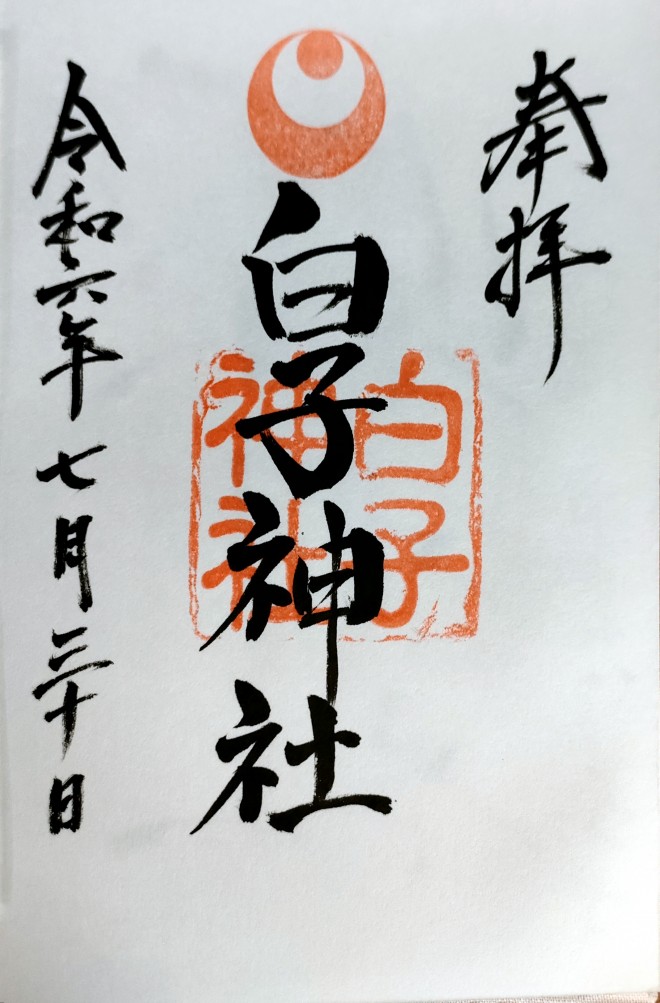 奉拝
白子神社
白子
神社
令和六年七月三十日